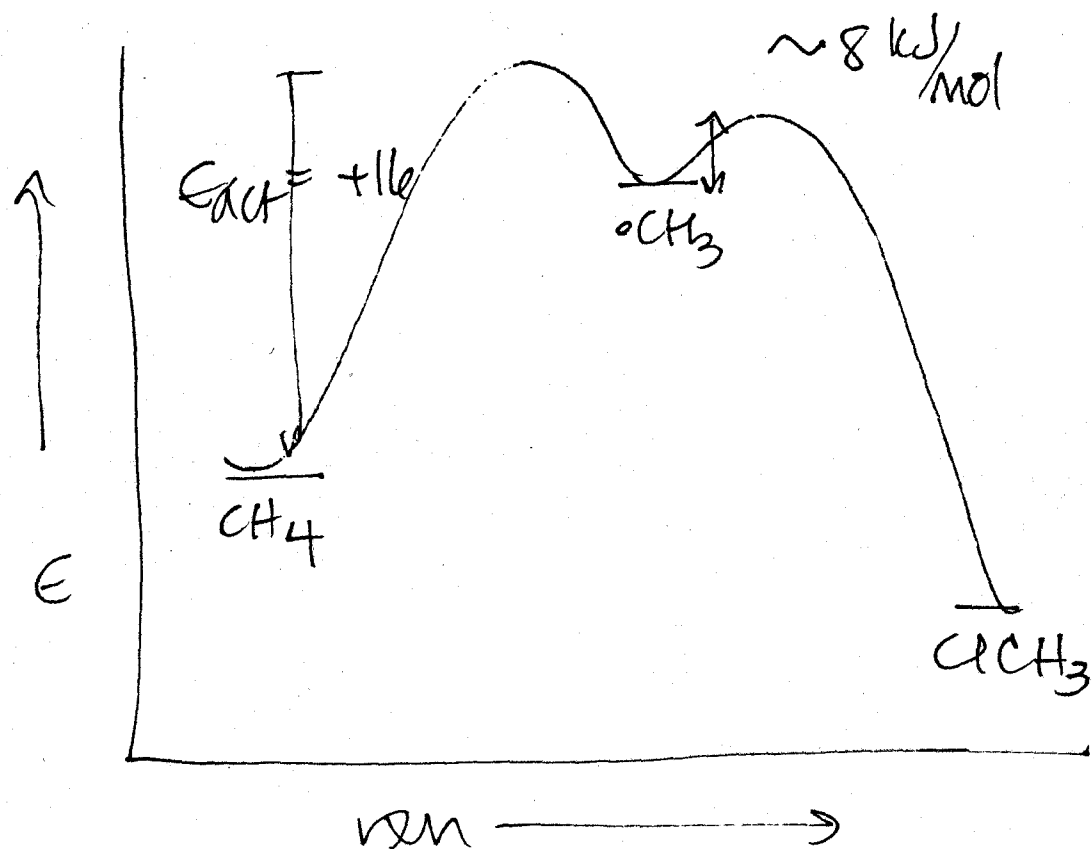 ~8 kJ/mol
Eact = +16
•CH3
CH4
E
ClCH3
rxn